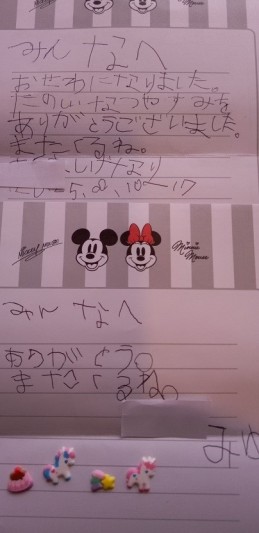 みんなへ
おせわになりました。
たのしいなつやすみを
ありがとうございました。
またくるね。
5,00,10〜17
Mickey Mouse
Minnie Mouse
みんなへ
ありがとう。
またくるね。
みゆ